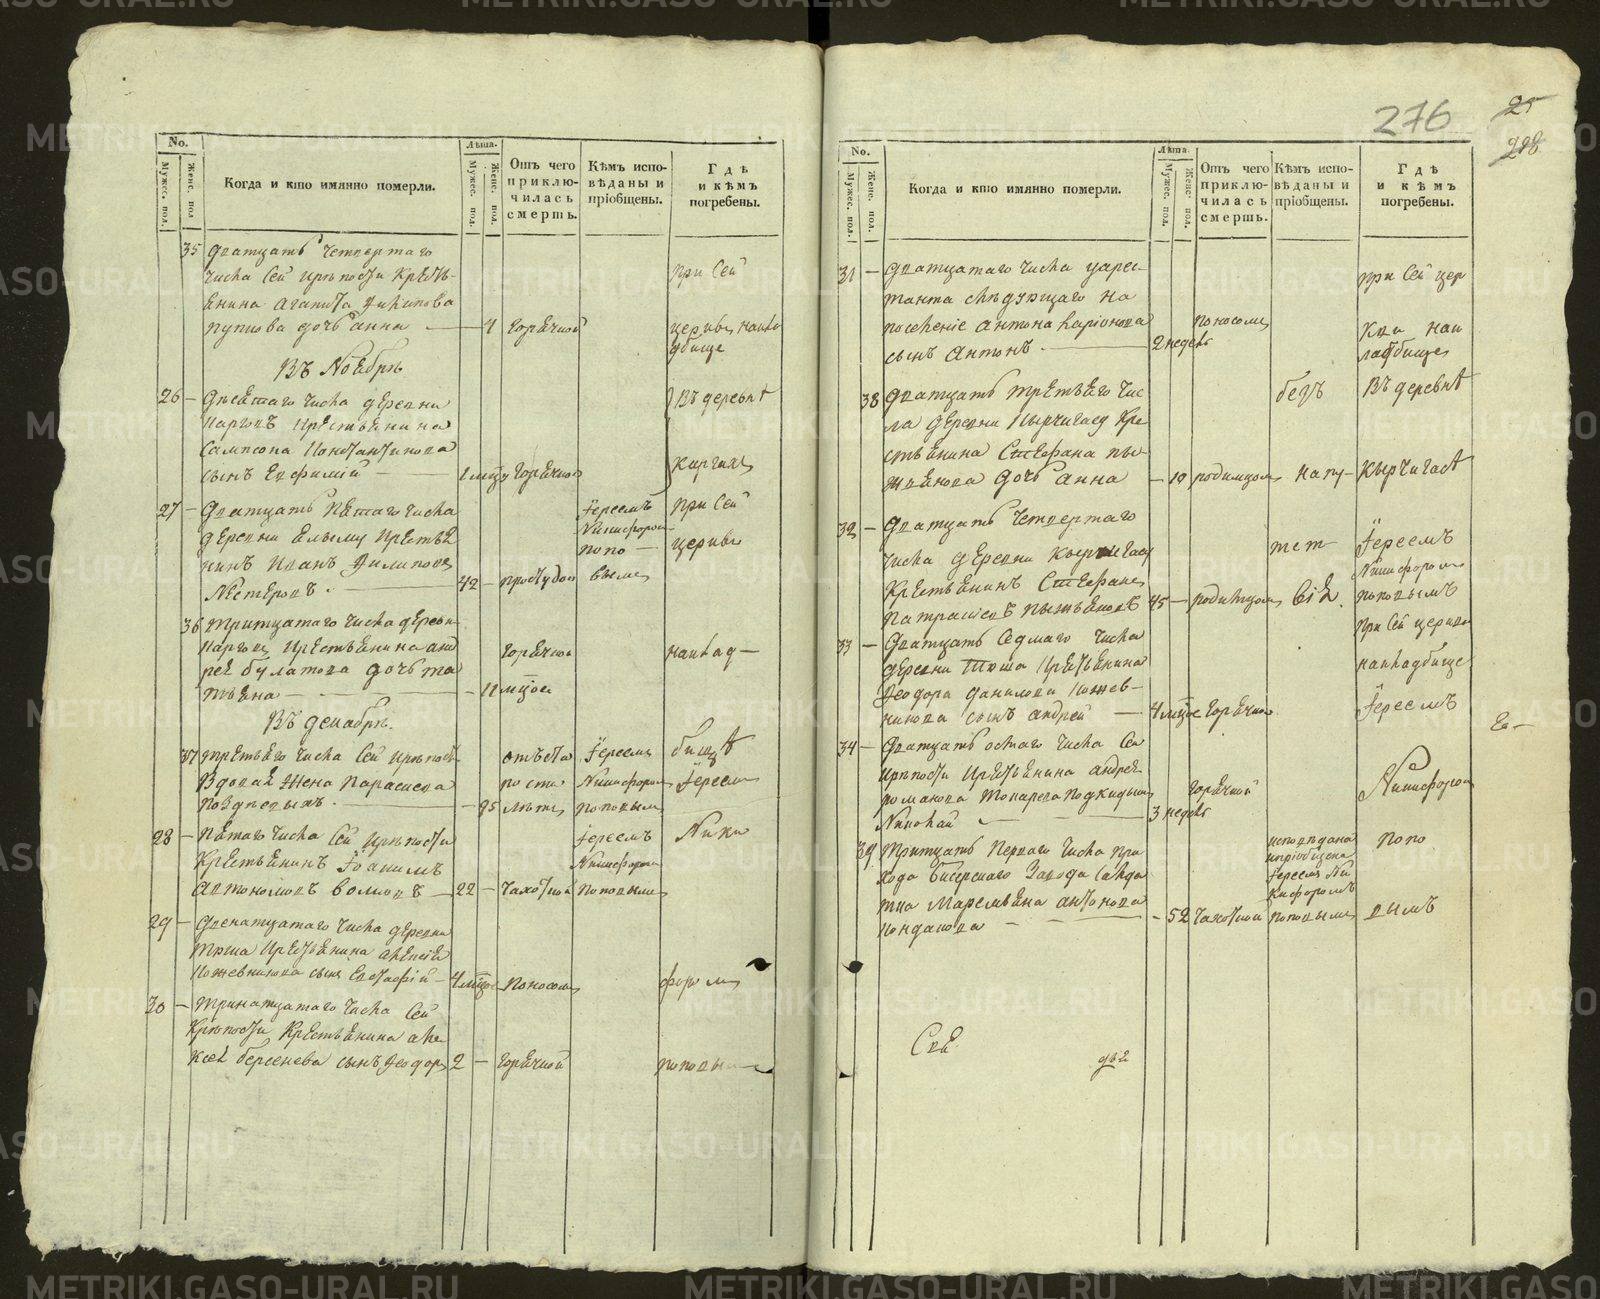 276
25
298
No.
Мужес. пол.
Женс. пол
Когда и кто имянно померли.
Лѣта.
Мужес. пол.
Женс. пол.
Отъ чего приклю-чилась смерть.
Кѣмъ испо-вѣданы и пріобщены.
Гдѣ и кѣмъ погребены.
35 Дватцать четвертаго
числа сей крѣпости крестъ-
янина Агапита
Пупкова дочь Анна — 1 горячкой
при сей
церкви наклад
бище
Въ Ноябрѣ
26 — Девятаго числа деревни
Каргов крестьянина
Сампсона Константинова
сынъ Евфимій — 1 мцъ горячкой
Въ деревнѣ
27 — Дватцать пятаго числа
деревни крестья
нинъ Иванъ Филипов
Нестеровъ. — 42 — простудою
Іереемъ
Никифором
Попо —
вымъ
при сей
церкви
36 Тритцатаго числа деревни
крестьянина Анд
рея Булатова дочь Та
тьяна — 11 мцов
горячкой
наклад —
Въ декабрѣ.
37 Третьяго числа сей крѣпост
вдовая жена Параскева
Поздневыхъ. — 95
отъ ста
рости
лѣтъ
Іереемъ
Никифором
Поповым
бищѣ
Іереем
28 — Пятаго числа сей крѣпости
крестьянинъ Іоакимъ
Автономовъ Волковъ — 22 — чахоткой
Іереемъ
Никифором
Поповымъ
Ники
29 — Двенатцатаго числа деревни
Тюша крестьянина Алексея
Кожевникова сынъ Евстафій — 4 мцов поносомъ
форомъ
30 — Тринатцатаго числа сей
крѣпости крестьянина Але
ксея Берсенева сынъ Феодоръ 2 — горячкой
Поповым
No.
Мужес. пол.
Женс. пол.
Когда и кто имянно померли.
Лѣта.
Мужес. пол.
Женс пол.
Отъ чего приклю-чилась смерть.
Кѣмъ испо-вѣданы и пріобщены.
Гдѣ и кѣмъ погребены.
31 — Дватцатаго числа уарес-
танта следующаго на
поселеніе Антона Ларіонова
сынъ Антонъ. — 2 недел
поносомъ
при сей цер
кви на
кладбище
38 Дватцать третьяго чис
ла деревни Кырчигаз кре
стьянина Стефана Пы
жьянова дочь Анна — 10 родимцомъ
безъ
напу —
Въ деревнѣ
Кырчигазѣ
32 — Дватцать четвертаго
числа деревни Кырчигаз
крестьянинъ Стефанъ
Патракіевъ Пыжьяновъ 45 — родимцомъ
тст
віе.
Іереемъ
Никифоромъ
Поповымъ
33 — Дватцать седмаго числа
деревни Тюша крестьянина
Феодора Данилова Кожев-
никова сынъ Андрей — 4 мцов горячкою
при сей церкви
накладбище
Іереемъ
34 — Дватцать осмаго числа се
крѣпости крестьянина Андрея
Романова Токарева подкидышъ
Николай — 3 недел
горячкой
Никифором
39 Тритцать перваго числа при
хода Бисерскаго завода салда
тка Маремьяна Антонова
Кондакова — 52 чахоткой
исповѣдана
и пріобщена
Іереемъ Ни
кифоромъ
Поповымъ
Попо
вымъ